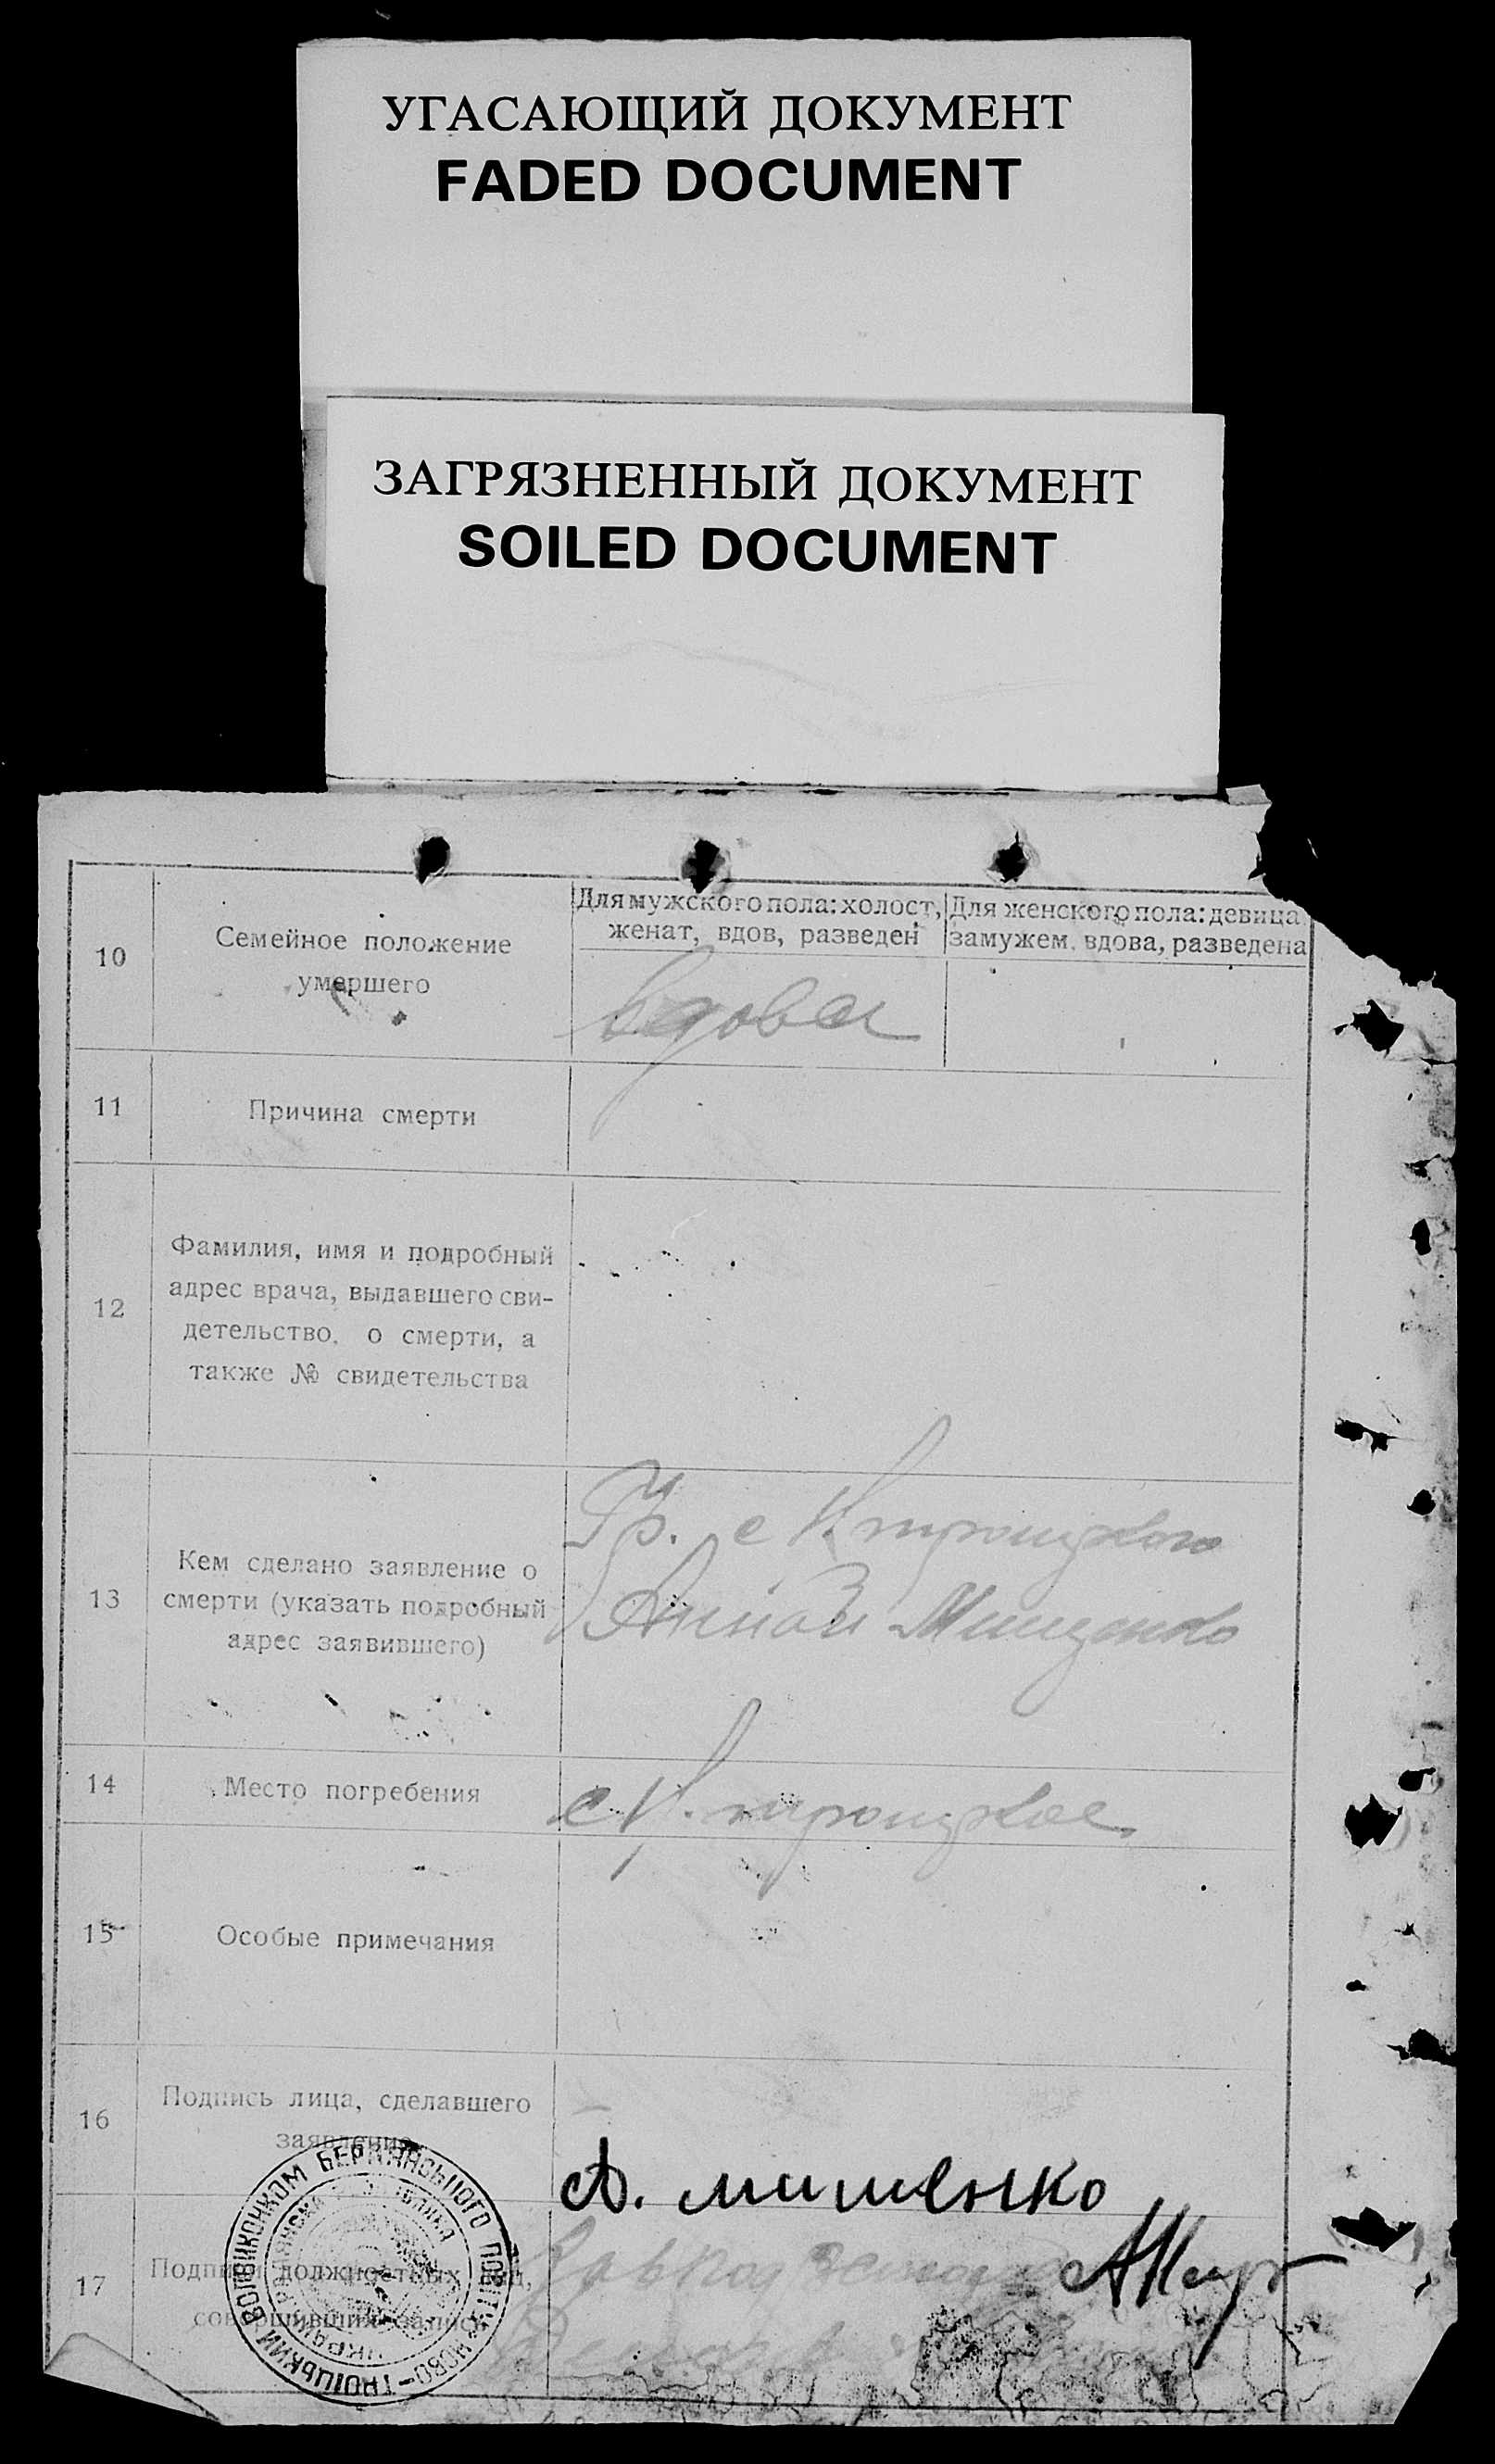 УГАСАЮЩИЙ ДОКУМЕНТ
FADED DOCUMENT
ЗАГРЯЗНЕННЫЙ ДОКУМЕНТ
SOILED DOCUMENT
10
Семейное положение
умершего
Для мужского пола: холост,
женат, вдов, разведен
Для женского пола: девица
замужем, вдова, разведена
вдова
11
Причина смерти
12
Фамилия, имя и подробный
адрес врача, выдавшего сви-
детельство о смерти, а
также № свидетельства
13
Кем сделано заявление о
смерти (указать подробный
адрес заявившего)
Гр. с Н. троицкого
Мищенко
14
Место погребения
с Н. троицкое
15
Особые примечания
16
Подпись лица, сделавшего
заявление
А. мишенко
17
Подписи должностных лиц,
совершивших запись
НОВО-ТРОЇЦЬКИЙ ВОЛВИКОНКОМ БЕРДЯНСЬЦОГО ПОВІТУ